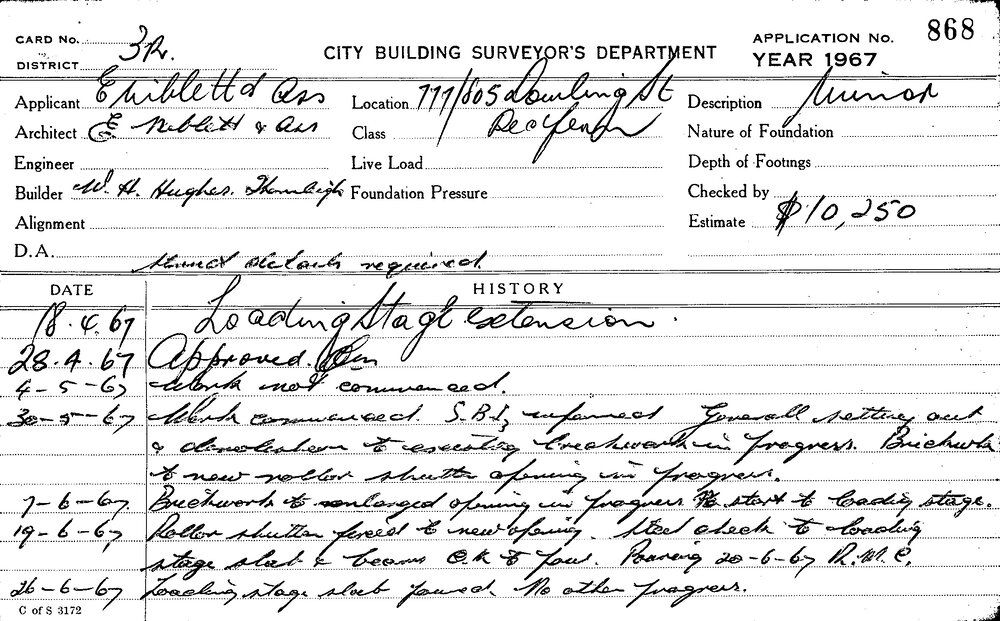 CARD No.
DISTRICT 3R.
CITY BUILDING SURVEYOR'S DEPARTMENT
APPLICATION No. 868
YEAR 1967
Applicant E Niblett & Ass Location 777/805 Dowling St Description Minor
Architect E Niblett & Ass Class Redfern Nature of Foundation
Engineer Live Load Depth of Footings
Builder W. H. Hughes. Thornleigh Foundation Pressure Checked by
Alignment Estimate $10,250
D.A. Struct details required.
DATE HISTORY
18.4.67 Loading Stage extension.
28.4.67 Approved.
4-5-67 Work not commenced.
30-5-67 Work commenced. S.B.I. informed Generall setting out
& demolishion to existing brickwork in progress. Brickwork
to new rollor shutter opening in progress.
7-6-67 Brickwork to enlarged opening in progress No start to loading stage.
19-6-67 Rollor shutter fixed to new opening. Steel check to loading
stage slab & beams O.K to pour. Pouring 20-6-67 R.M.C.
26-6-67 Loading stage slab poured. No other progress.
C of S 3172